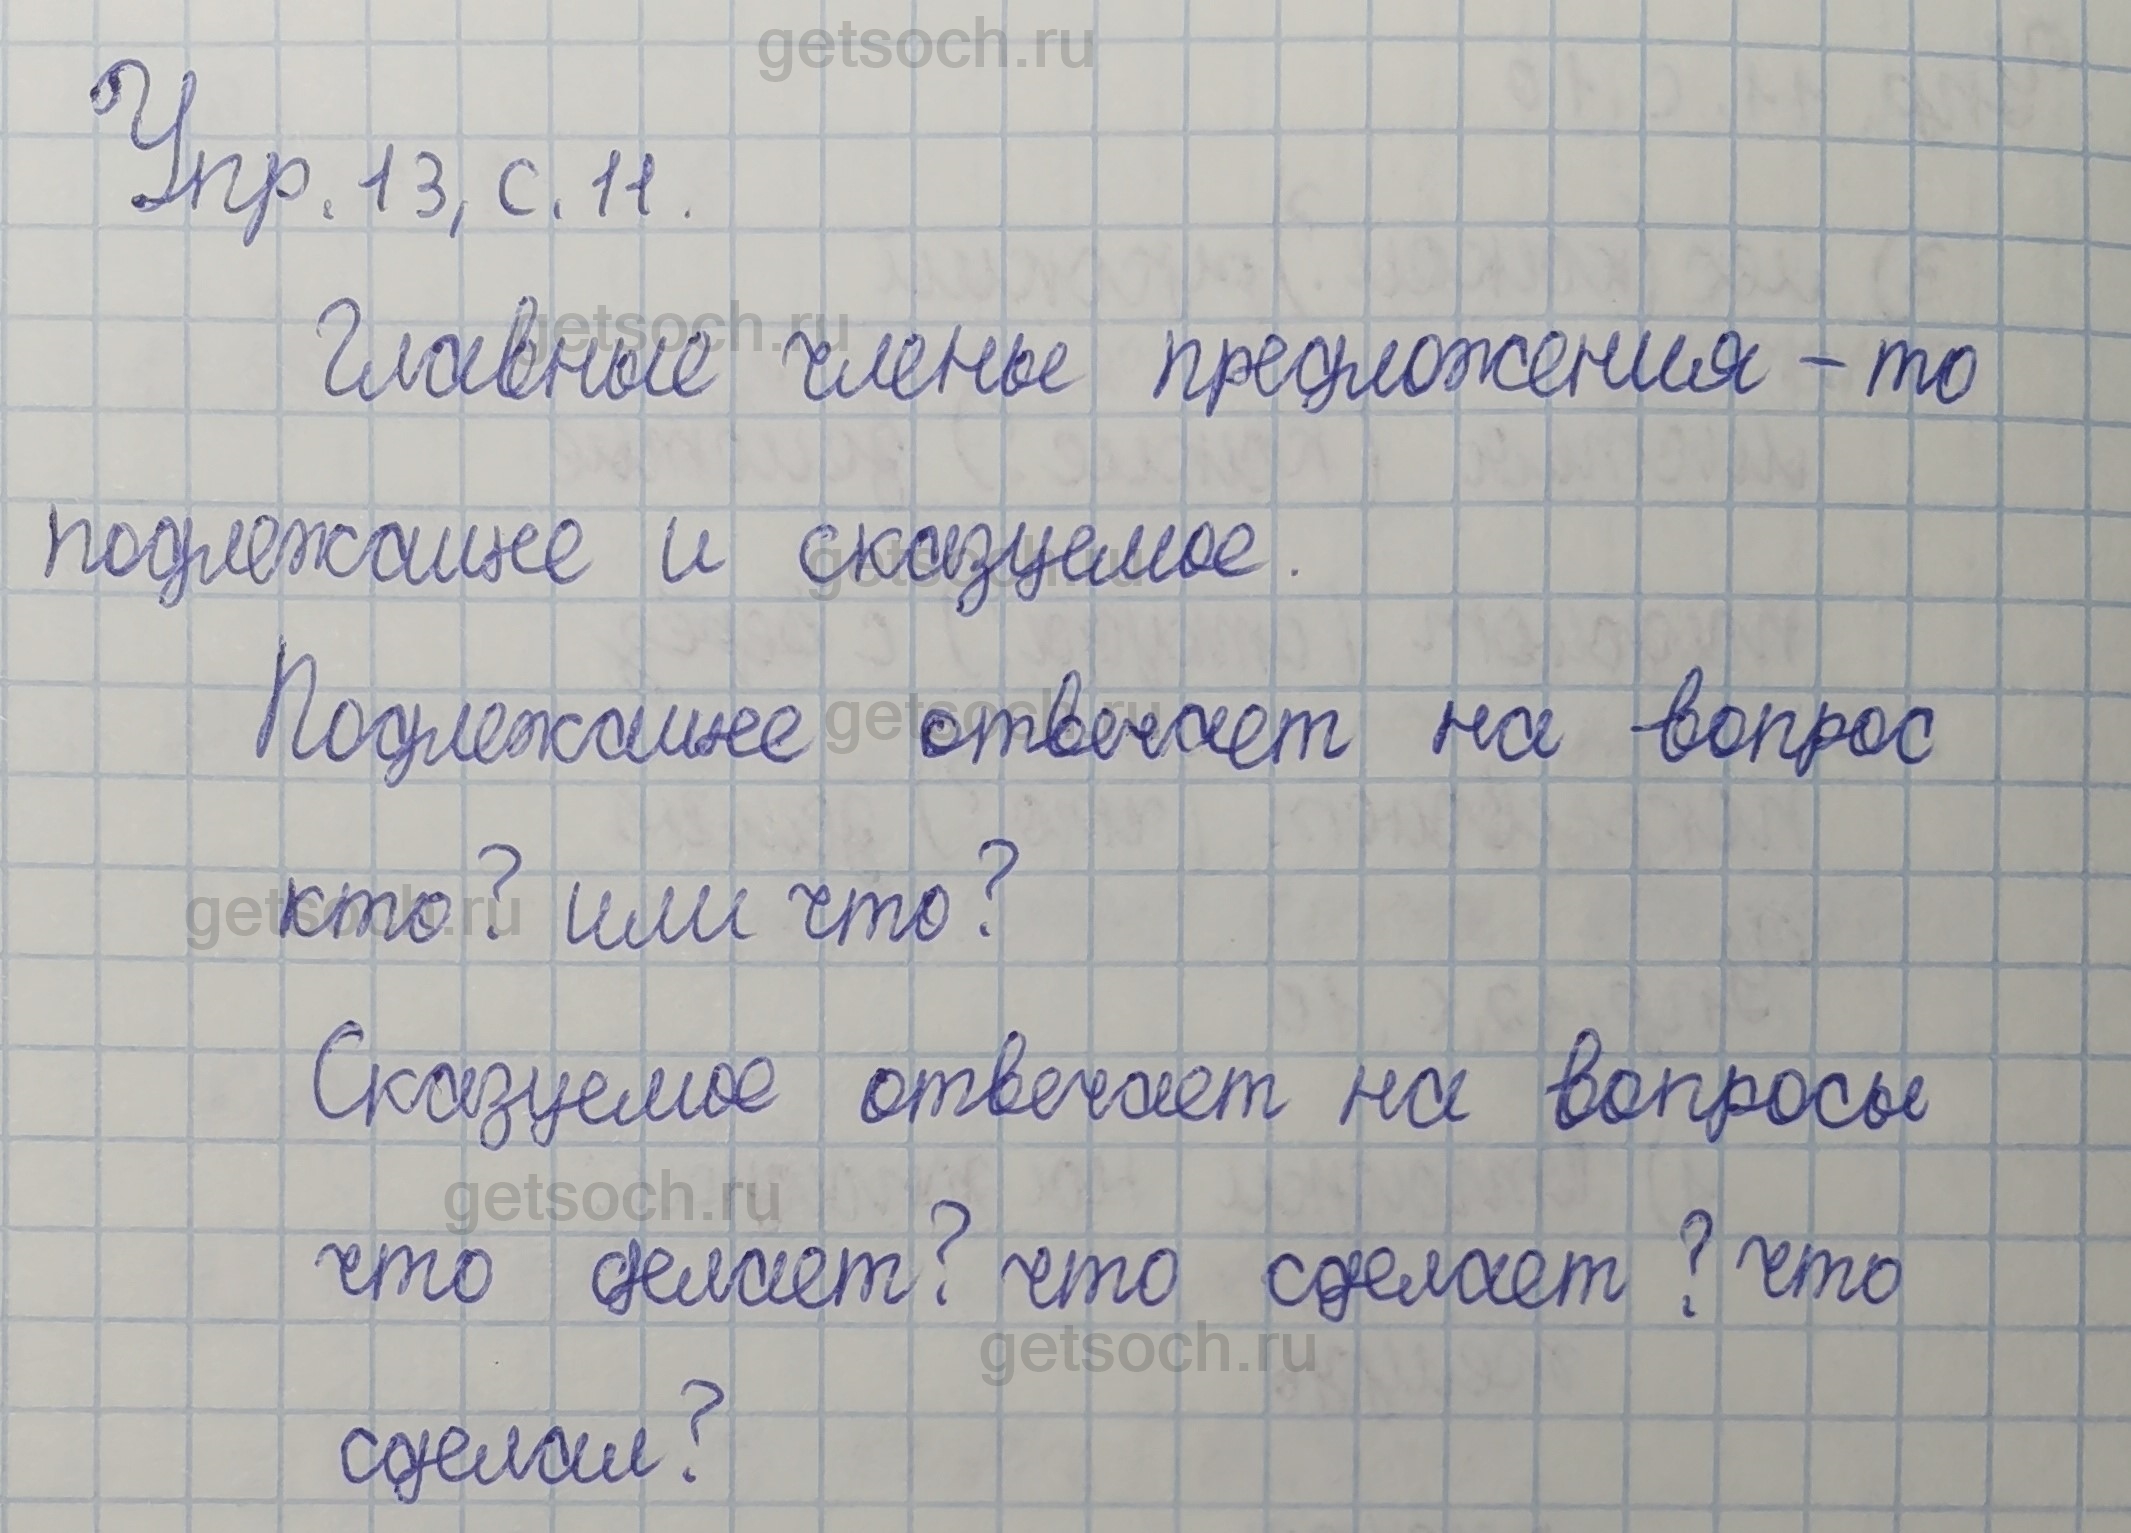 getsoch.ru
Упр. 13, с. 11.
Главные члены предложения – то
getsoch.ru
подлежащее и сказуемое.
getsoch.ru
Подлежащее отвечает на вопрос
getsoch.ru
кто? или что?
getsoch.ru
Сказуемое отвечает на вопросы
getsoch.ru
что делает? что сделает? что
getsoch.ru
сделал?